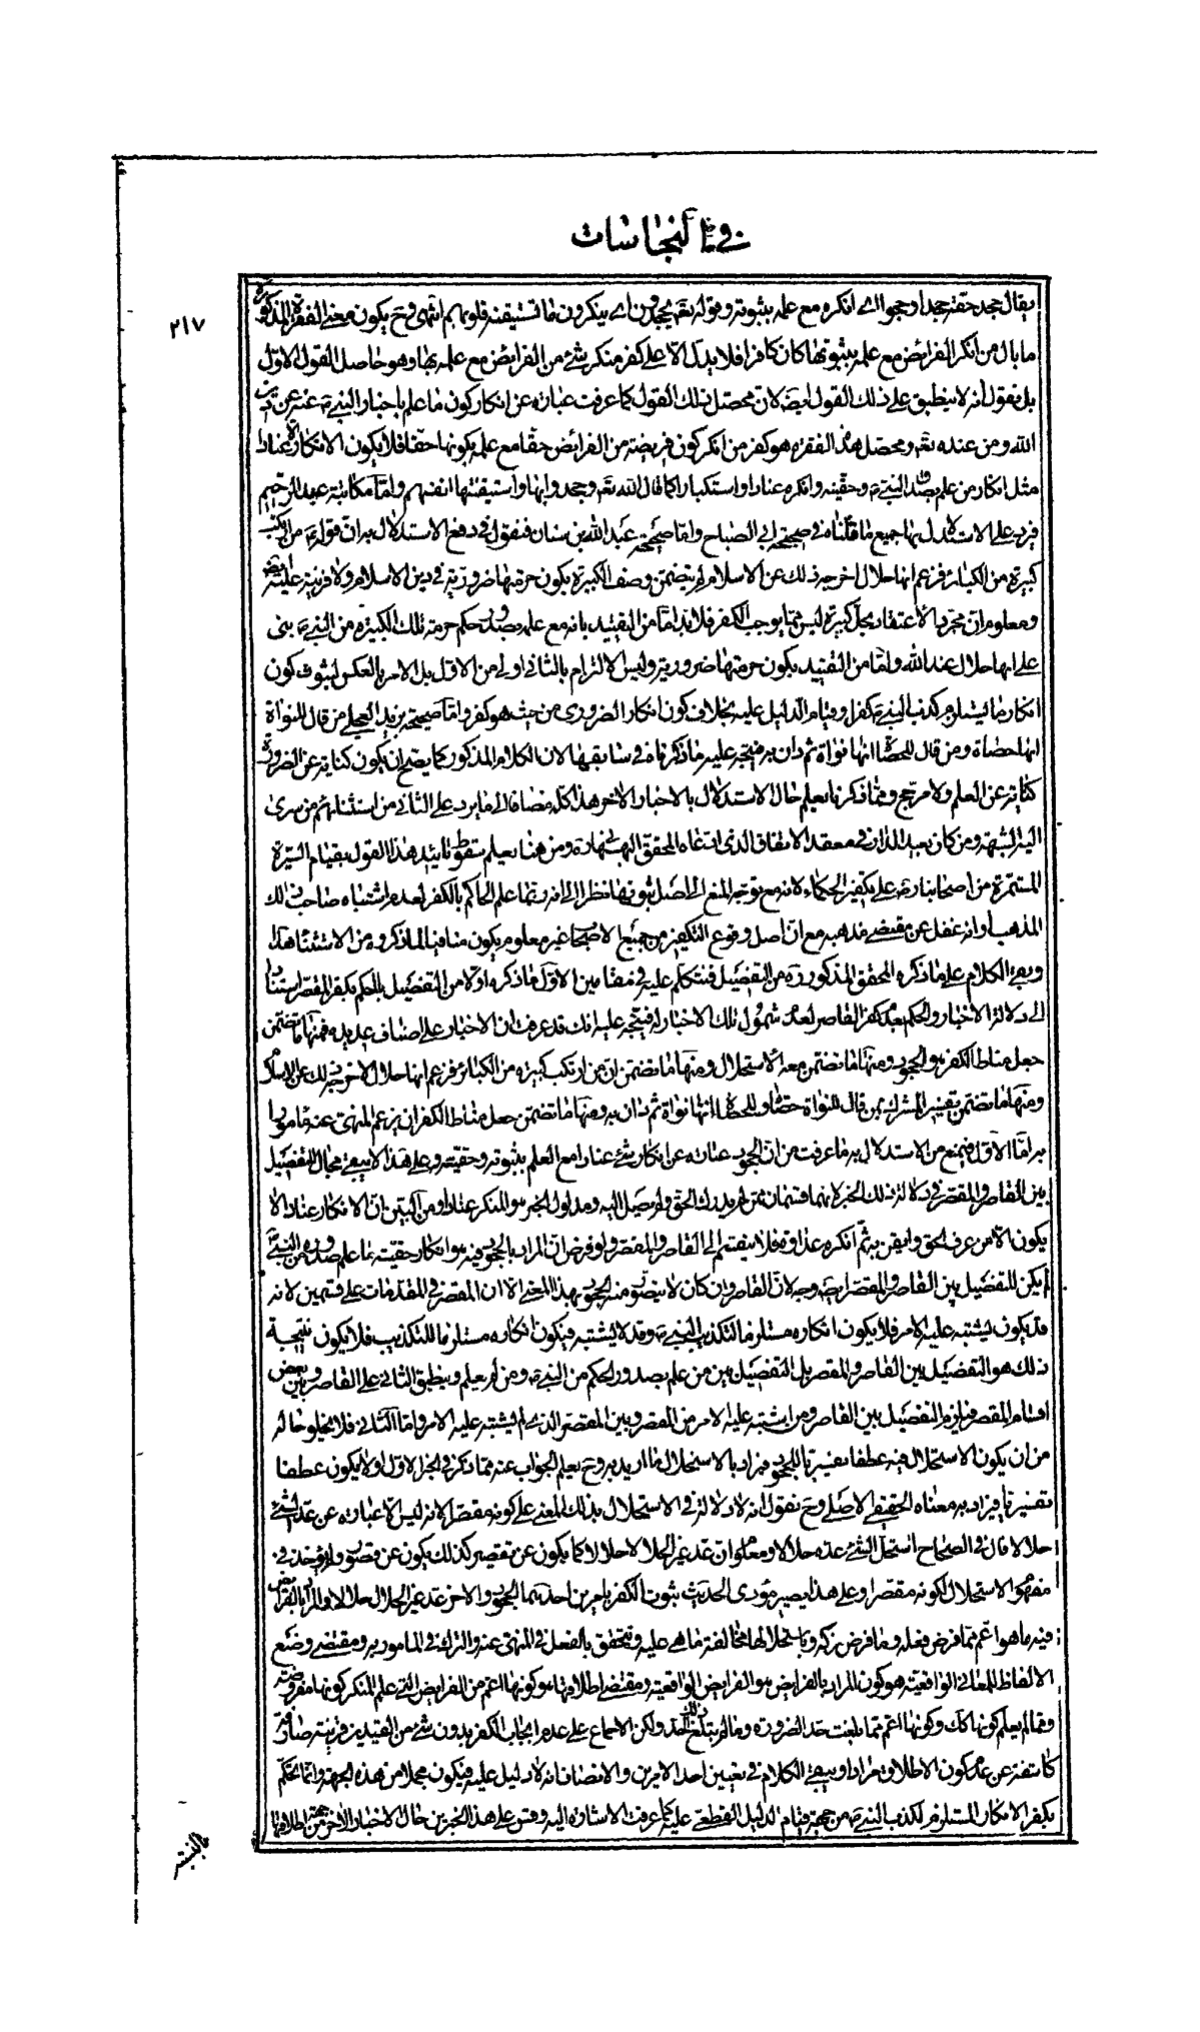 في النجاسات
٢١٧
يقال جحد حقه جحدا وجحودا اي انكره مع علمه بثبوته وقوله تعالى يجحدون اي ينكرون ما تستيقنه قلوبهم انتهى وح يكون معنى الفقرة المذكورة
ما بال من انكر الفرائض مع علمه بثبوتها كان كافرا فلا يدل الا على كفر منكر شئ من الفرائض مع علمه بها وهو حاصل القول الاول
بل نقول انه لا ينطبق على ذلك القول ايضا لان محصل ذلك القول كما عرفت عبارة عن انكار كون ما علم باخبار النبي ص عنه عن
الله ومن عنده تعالى ومحصل هذه الفقرة هو كفر من انكر كون فريضة من الفرائض حقا مع علمه بكونها حقا فلا يكون الانكار الا عنادا
مثل انكار من علم بصدق النبي ص وحقيته وانكره عنادا واستكبارا كما قال الله تعالى وجحدوا بها واستيقنتها انفسهم واما مكاتبة عبد الرحيم
فيرد على الاستدلال بها جميع ما قلناه في صحيحة ابي الصباح واما صحيحة عبد الله بن سنان فنقول في دفع الاستدلال به ان قوله ع من ارتكب
كبيرة من الكبائر فزعم انها حلال اخرجه ذلك عن الاسلام لم يتضمن وصف الكبيرة بكون حرمتها ضرورية في دين الاسلام ولا قرينة عليه
ومعلوم ان مجرد الاعتقاد بحل كبيرة ليس مما يوجب الكفر فلا بد اما من التقييد بانه مع علمه بصدور حكم حرمة تلك الكبيرة من النبي ص بنى
على انها حلال عند الله واما من التقييد بكون حرمتها ضرورية وليس الالتزام بالثاني اولى من الاول بل الامر بالعكس لثبوت كون
انكار ما يستلزم تكذيب النبي ص كفرا وقيام الدليل عليه بخلاف كون انكار الضروري من حيث هو كفرا واما صحيحة بريد العجلي من قال للنواة
انها حصاة ومن قال للحصاة انها نواة ثم دان به فيتجه عليه ما ذكرناه في سابقها لان الكلام المذكور كما يصلح ان يكون كناية عن الضرورة
كناية عن العلم ولا مرجح ومما ذكرنا يعلم حال الاستدلال بالاخبار الاخر هذا كله مضافا الى ما يرد على الثاني من استثنائهم من سرى
اليه الشبهة ومن كان بعيد الدار في معقد الاتفاق الذي ادعاه المحقق البهبهاني ره ومن هنا يعلم سقوط تاييد هذا القول بقيام السيرة
المستمرة من اصحابنا ره على تكفير الحكماء لانه مع توجه المنع الى اصل ثبوتها نظرا الى انه ربما علم الحاكم بالكفر لعدم اشتباه صاحب ذلك
المذهب او انه غفل عن مقتضى مذهبه مع ان اصل وقوع التكفير من جميع الاصحاب غير معلوم يكون منافيا لما ذكروه من الاستثناء هذا
وبقي الكلام على ما ذكره المحقق المذكور ره من التفصيل فنتكلم عليه في مقامين الاول ما ذكره اولا من التفصيل بالحكم بكفر المقصر استنادا
الى دلالة الاخبار والحكم بعدم كفر القاصر لعدم شمول تلك الاخبار له فيتجه عليه انك قد عرفت ان الاخبار على اصناف عديدة فمنها ما تضمن
جعل مناط الكفر هو الجحود ومنها ما تضمن معه الاستحلال ومنها ما تضمن ان من ارتكب كبيرة من الكبائر فزعم انها حلال اخرجه ذلك عن الاسلام
ومنها ما تضمن تفسير المشرك بمن قال للنواة حصاة وللحصاة انها نواة ثم دان به ومنها ما تضمن جعل مناط الكفر ان يزعم المنهي عنه مامورا
به اما الاول فيمنع من الاستدلال به ما عرفت من ان الجحود عبارة عن انكار شئ عنادا مع العلم بثبوته وحقيته وعلى هذا لا يبقى مجال للتفصيل
بين القاصر والمقصر في دلالة ذلك الخبر لانهما قسمان ممن لم يدرك الحق ولم يصل اليه ومدلول الخبر هو المنكر عنادا ومن البين ان الانكار عنادا لا
يكون الا من عرف الحق وايقن به ثم انكره عداوة فلا ينقسم الى القاصر والمقصر ولو فرض ان المراد بالجحود فيه هو انكار حقية ما علم صدوره من النبي ص
لم يكن للتفصيل بين القاصر والمقصر ايضا وجه لان القاصر وان كان لا يتصور منه الجحود بهذا المعنى الا ان المقصر في المقدمات على قسمين لانه
قد يكون يشتبه عليه الامر فلا يكون انكاره مستلزما لتكذيب النبي ص وقد لا يشتبه فيكون انكاره مستلزما للتكذيب فلا يكون نتيجة
ذلك هو التفصيل بين القاصر والمقصر بل التفصيل بين من علم بصدور الحكم من النبي ص ومن لم يعلم وينطبق الثاني على القاصر وبعض
اقسام المقصر فيلزم التفصيل بين القاصر ومن اشتبه عليه الامر من المقصر وبين المقصر الذي لم يشتبه عليه الامر واما الثاني فلا يخلو حاله
من ان يكون الاستحلال فيه عطفا تفسيريا للجحود فيراد بالاستحلال ما اريد به وح يعلم الجواب عنه مما ذكر في الخبر الاول او لا يكون عطفا
تفسيريا فيراد به معناه الحقيقي الاصلي وح نقول انه لا دلالة في الاستحلال بذلك المعنى على كونه مقصرا لانه ليس الا عبارة عن عد الشئ
حلالا قال في الصحاح استحل الشئ عده حلالا ومعلوم ان عد غير الحلال حلالا كما يكون عن تقصير كذلك يكون عن قصور ولم يؤخذ في
مفهوم الاستحلال كونه مقصرا وعلى هذا يصير مؤدى الحديث ثبوت الكفر بامرين احدهما الجحود والاخر عد غير الحلال حلالا والمراد بالفرائض
فيه ما هو اعم مما فرض فعله وما فرض تركه وباستحلالها مخالفة ما هي عليه ويتحقق بالفعل في المنهي عنه والترك في المامور به ومقتضى وضع
الالفاظ للمعاني الواقعية هو كون المراد بالفرايض هو الفرايض الواقعية ومقتضى اطلاقها هو كونها اعم من الفرايض التي علم المنكر كونها مفروضة
ومما لم يعلم كونها كك وكونها اعم مما بلغت حد الضرورة وما لم تبلغ ذلك الحد ولكن الاجماع على عدم ايجاب الكفر بدون شئ من القيدين قرينة صارفة
كاشفة عن عدم كون الاطلاق مرادا ويبقى الكلام في تعيين احد الامرين والانصاف انه لا دليل عليه فيكون مجملا من هذه الجهة وانما نحكم
بكفر الانكار المستلزم لتكذيب النبي ص من جهة قيام الدليل القطعي عليه كما عرفت الاشارة اليه وقس على هذا الخبرين حال الاخبار الاخر من جهة اطلاقها
بالنسبة